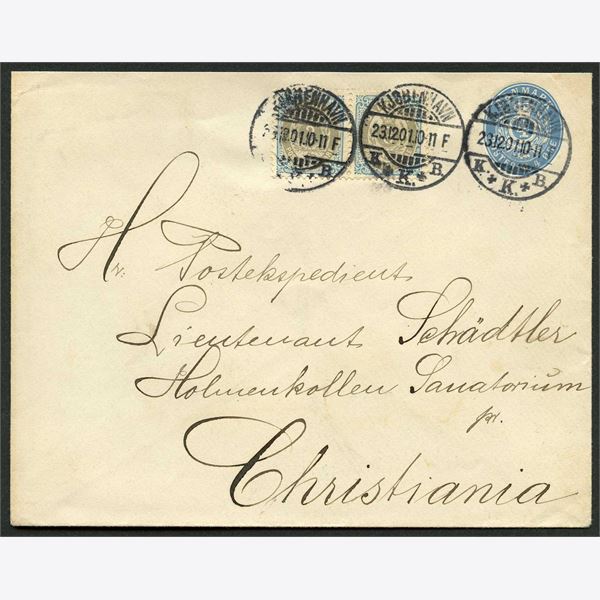 KJØBENHAVN
23.12.01.10-11 F
K. K. B.
KJØBENHAVN
23.12.01.10-11 F
K. K. B.
DANMARK
23.12.01.10-11
K. K. B.
Hr. Postekspedient
Lieutenant Schädtler
Holmenkollen Sanatorium
pr.
Christiania